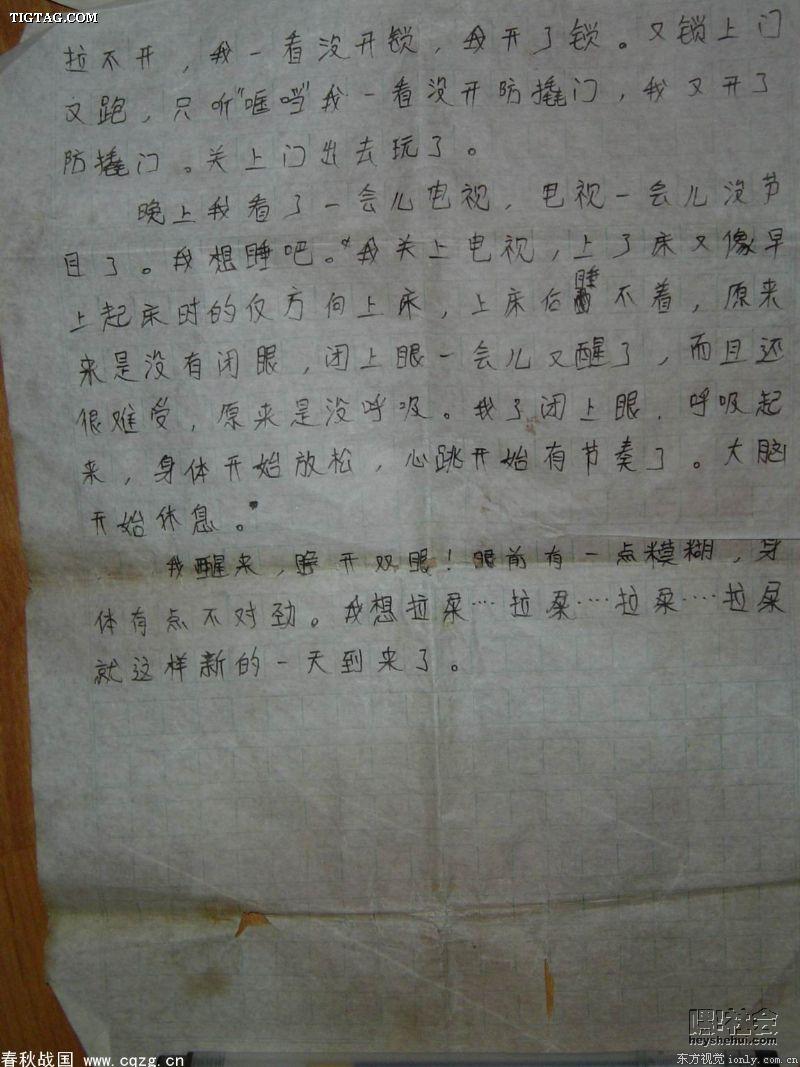 TIGTAG.COM
拉不开，我一看没开锁，我开了锁。又锁上门
又跑，只听"哐啷"我一看没开防撬门，我又开了
防撬门。关上门出去玩了。
晚上我看了一会儿电视，电视一会儿没节
目了。我想睡吧。我关上电视，上了床又像早
上起床时的仅方向上床，上床后睡不着，原来
来是没有闭眼，闭上眼一会儿又醒了，而且还
很难受，原来是没呼吸。我了闭上眼．呼吸起
来，身体开始放松，心跳开始有节奏了。大脑
开始休息。
我醒来，睁开双眼！眼前有一点模糊，身
体有点不对劲。我想拉屎…拉屎…拉屎…拉屎
就这样新的一天到来了。
嘿社会
heyshehui.com
春秋战国 www.cqzg.cn
东方视觉 ionly.com.cn